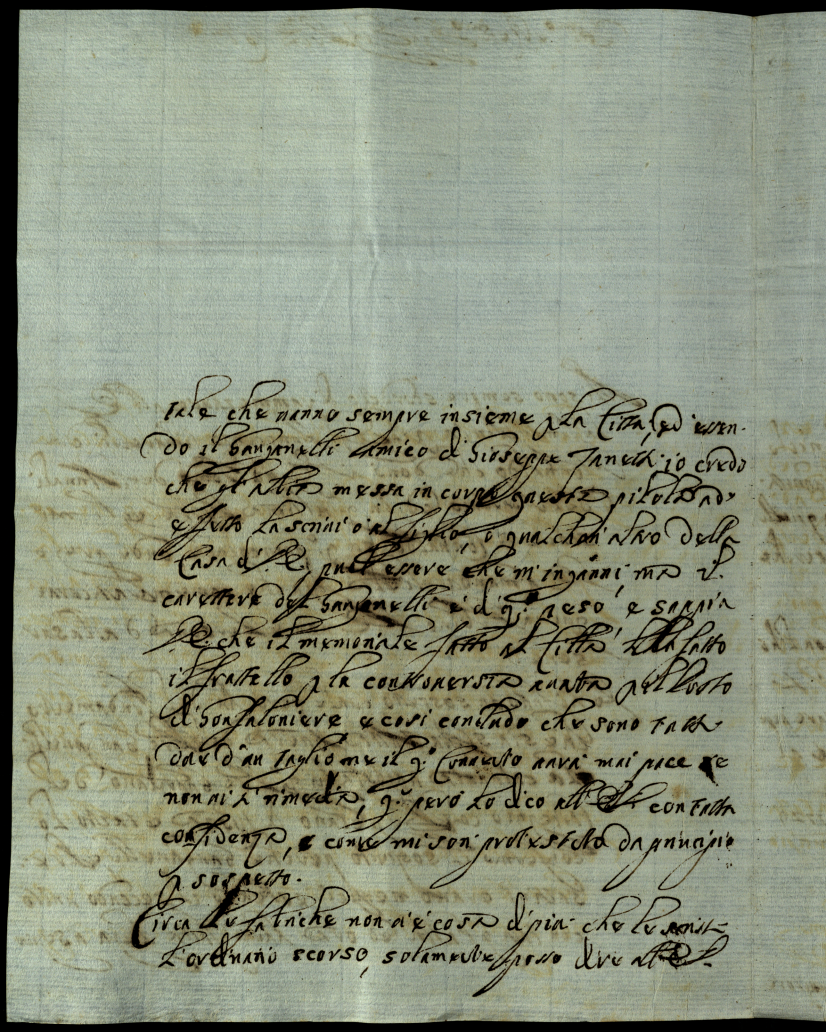 tale che vanno sempre insieme p la Città, ed essen-
do il Ganganelli Amico di Gioseppe Zanetti; io credo
che gl'abbia messa in corpo questa pilola ad
effetto la scrivi o al figlio, o qualchun altro della
Casa di può essere che m'inganni, ma il
carattere del Ganganelli è di q.o peso, e sappia
che il memoriale fatto al Città l'ha fatto
il fratello p la controversia avuta pel Posto
di Gonfaloniere e così concludo che sono tutti
due d'un taglio ne il q.o Convento avrà mai pace se
non vi si rimedia, q.o però lo dico all' con tutta
confidenza, e come mi son protestato da principio
p sospetto.
Circa le fabriche non vi è cosa di più che le scrissi
l'ordinario scorso, solamente posso dire all'